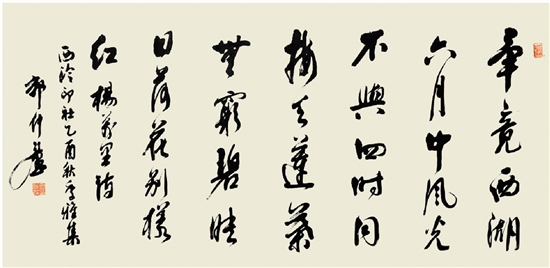 畢竟西湖
六月中風光
不與四時同
接天蓮葉
無窮碧映
日荷花別樣
紅 楊萬里詩
西泠印社乙酉秋季雅集
郭仲選